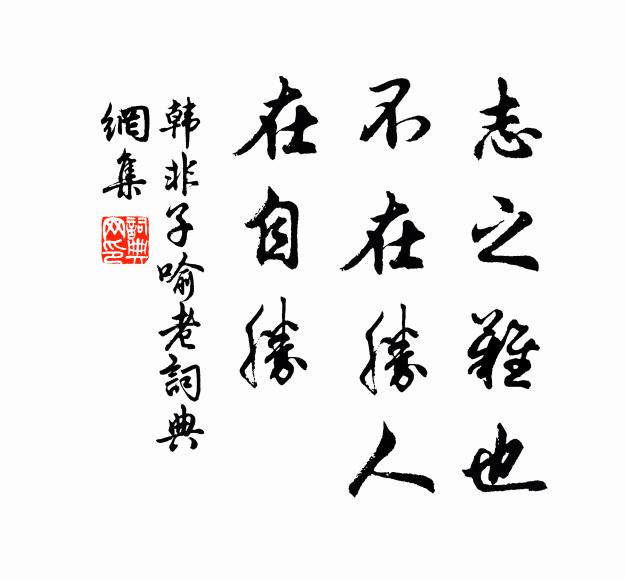 志之難也
不在勝人
在自勝
韩非子喻老詞典
網集
詞典
网印